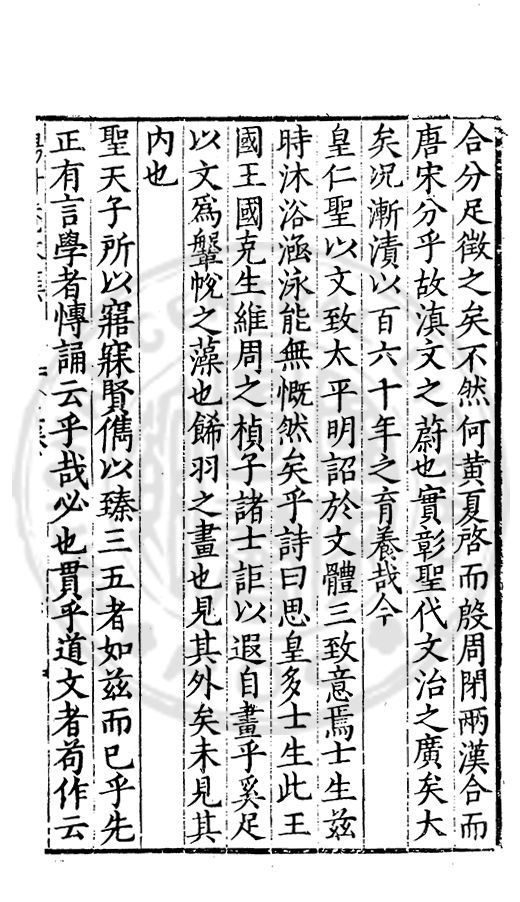 合分足徵之矣不然何黄夏啓而殷周閉兩漢合而
唐宋分乎故滇文之蔚也實彰聖代文治之廣矣大
矣况漸漬以百六十年之育養哉今
皇仁聖以文致太平明詔於文體三致意焉士生兹
時沐浴涵泳能無慨然矣乎詩曰思皇多士生此王
國王國克生維周之楨子諸士詎以遐自畫乎奚足
以文爲鞶帨之藻也餙羽之畫也見其外矣未見其
内也
聖天子所以寤寐賢儁以臻三五者如兹而已乎先
正有言學者慱誦云乎哉必也貫乎道文者苟作云